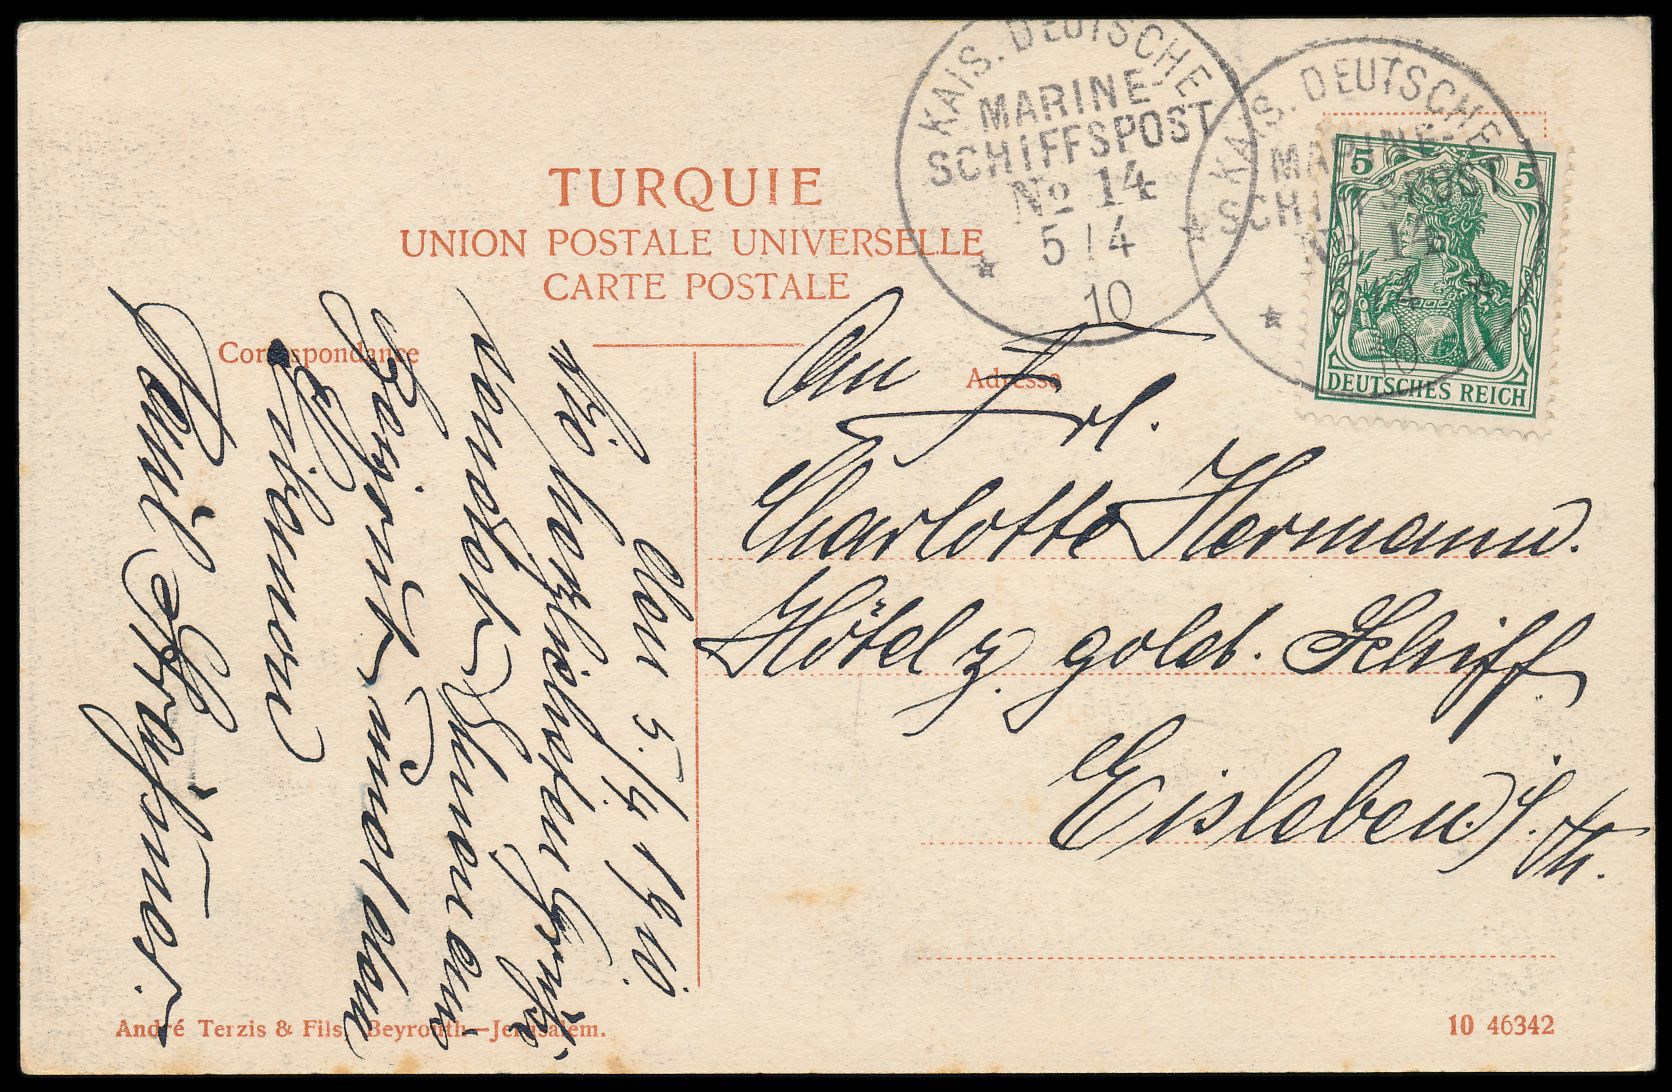 KAIS. DEUTSCHE
MARINE-
SCHIFFSPOST
No 14
5 / 4
10
KAIS. DEUTSCHE
MARINE-
SCHIFFSPOST
No 14
5 4
10
5 5
DEUTSCHES REICH
TURQUIE
UNION POSTALE UNIVERSELLE
CARTE POSTALE
Correspondance
Adresse
An Frl.
Charlotte Hermann.
Hôtel z. gold. Schiff
Eisleben i. Th.
den 5./4 1910.
Die herzlichsten Grüße
sendet Ihnen ein
Beirut und dem
Libanon
André Terzis & Fils, Beyrouth—Jerusalem.
10 46342